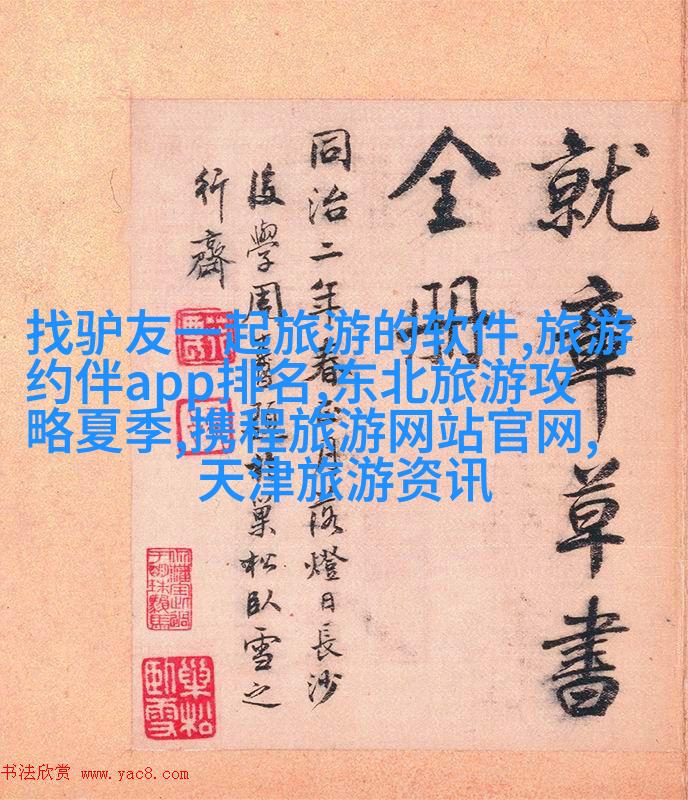 找驴友一起旅游的软件,旅游
约伴app排名,东北旅游攻
略夏季,携程旅游网站官网,
天津旅游资讯
就章草書
全册
同治二年春正月落燈日長沙
後學周於巢松臥雪之
行齋
巢松
臥雪
书法欣赏 www.yac8.com